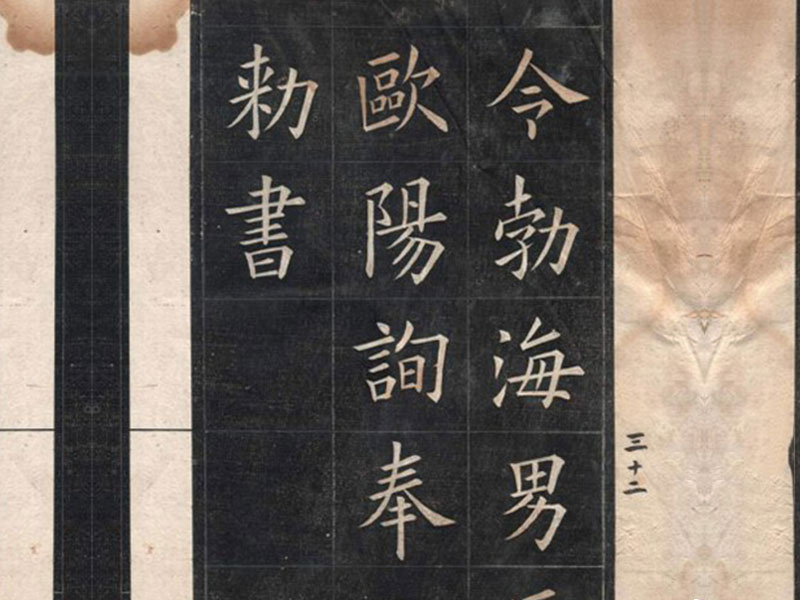 令勃海男
歐陽詢奉
勑書
三十二